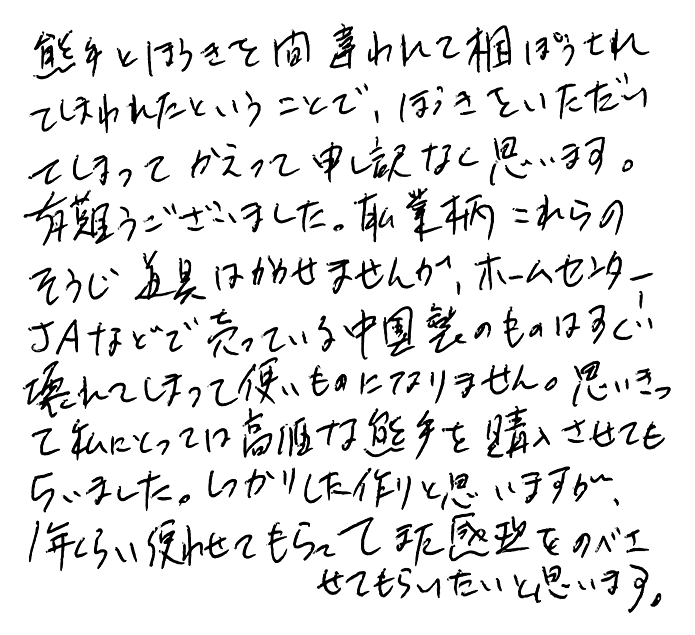 熊手とほうきを間違われて梱ぽうされ
てしまわれたということで、ほうきをいただい
てしまってかえって申し訳なく思います。
有難うございました。職業柄これらの
そうじ道具はかかせませんが、ホームセンター
JAなどで売っている中国製のものはすぐに
壊れてしまって使いものになりません。思いきっ
て私にとっては高価な熊手を購入させても
らいました。しっかりした作りと思いますが、
1年くらい使わせてもらって また感想をのべさ
せてもらいたいと思います。